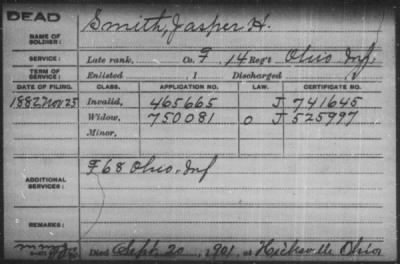 DEAD
NAME OF SOLDIER: Smith, Jasper H.
SERVICE: Late rank, Co. F, 14 Reg't Ohio Inf.
TERM OF SERVICE: Enlisted , 1 Discharged , 1
DATE OF FILING. CLASS. APPLICATION NO. LAW. CERTIFICATE NO.
1882 Nov 25 Invalid, 465665 J 741645
Widow, 750081 O J 525997
Minor,
ADDITIONAL SERVICES: F 68 Ohio. Inf
REMARKS:
Died Sept. 20, 1901, at Hicksville Ohio